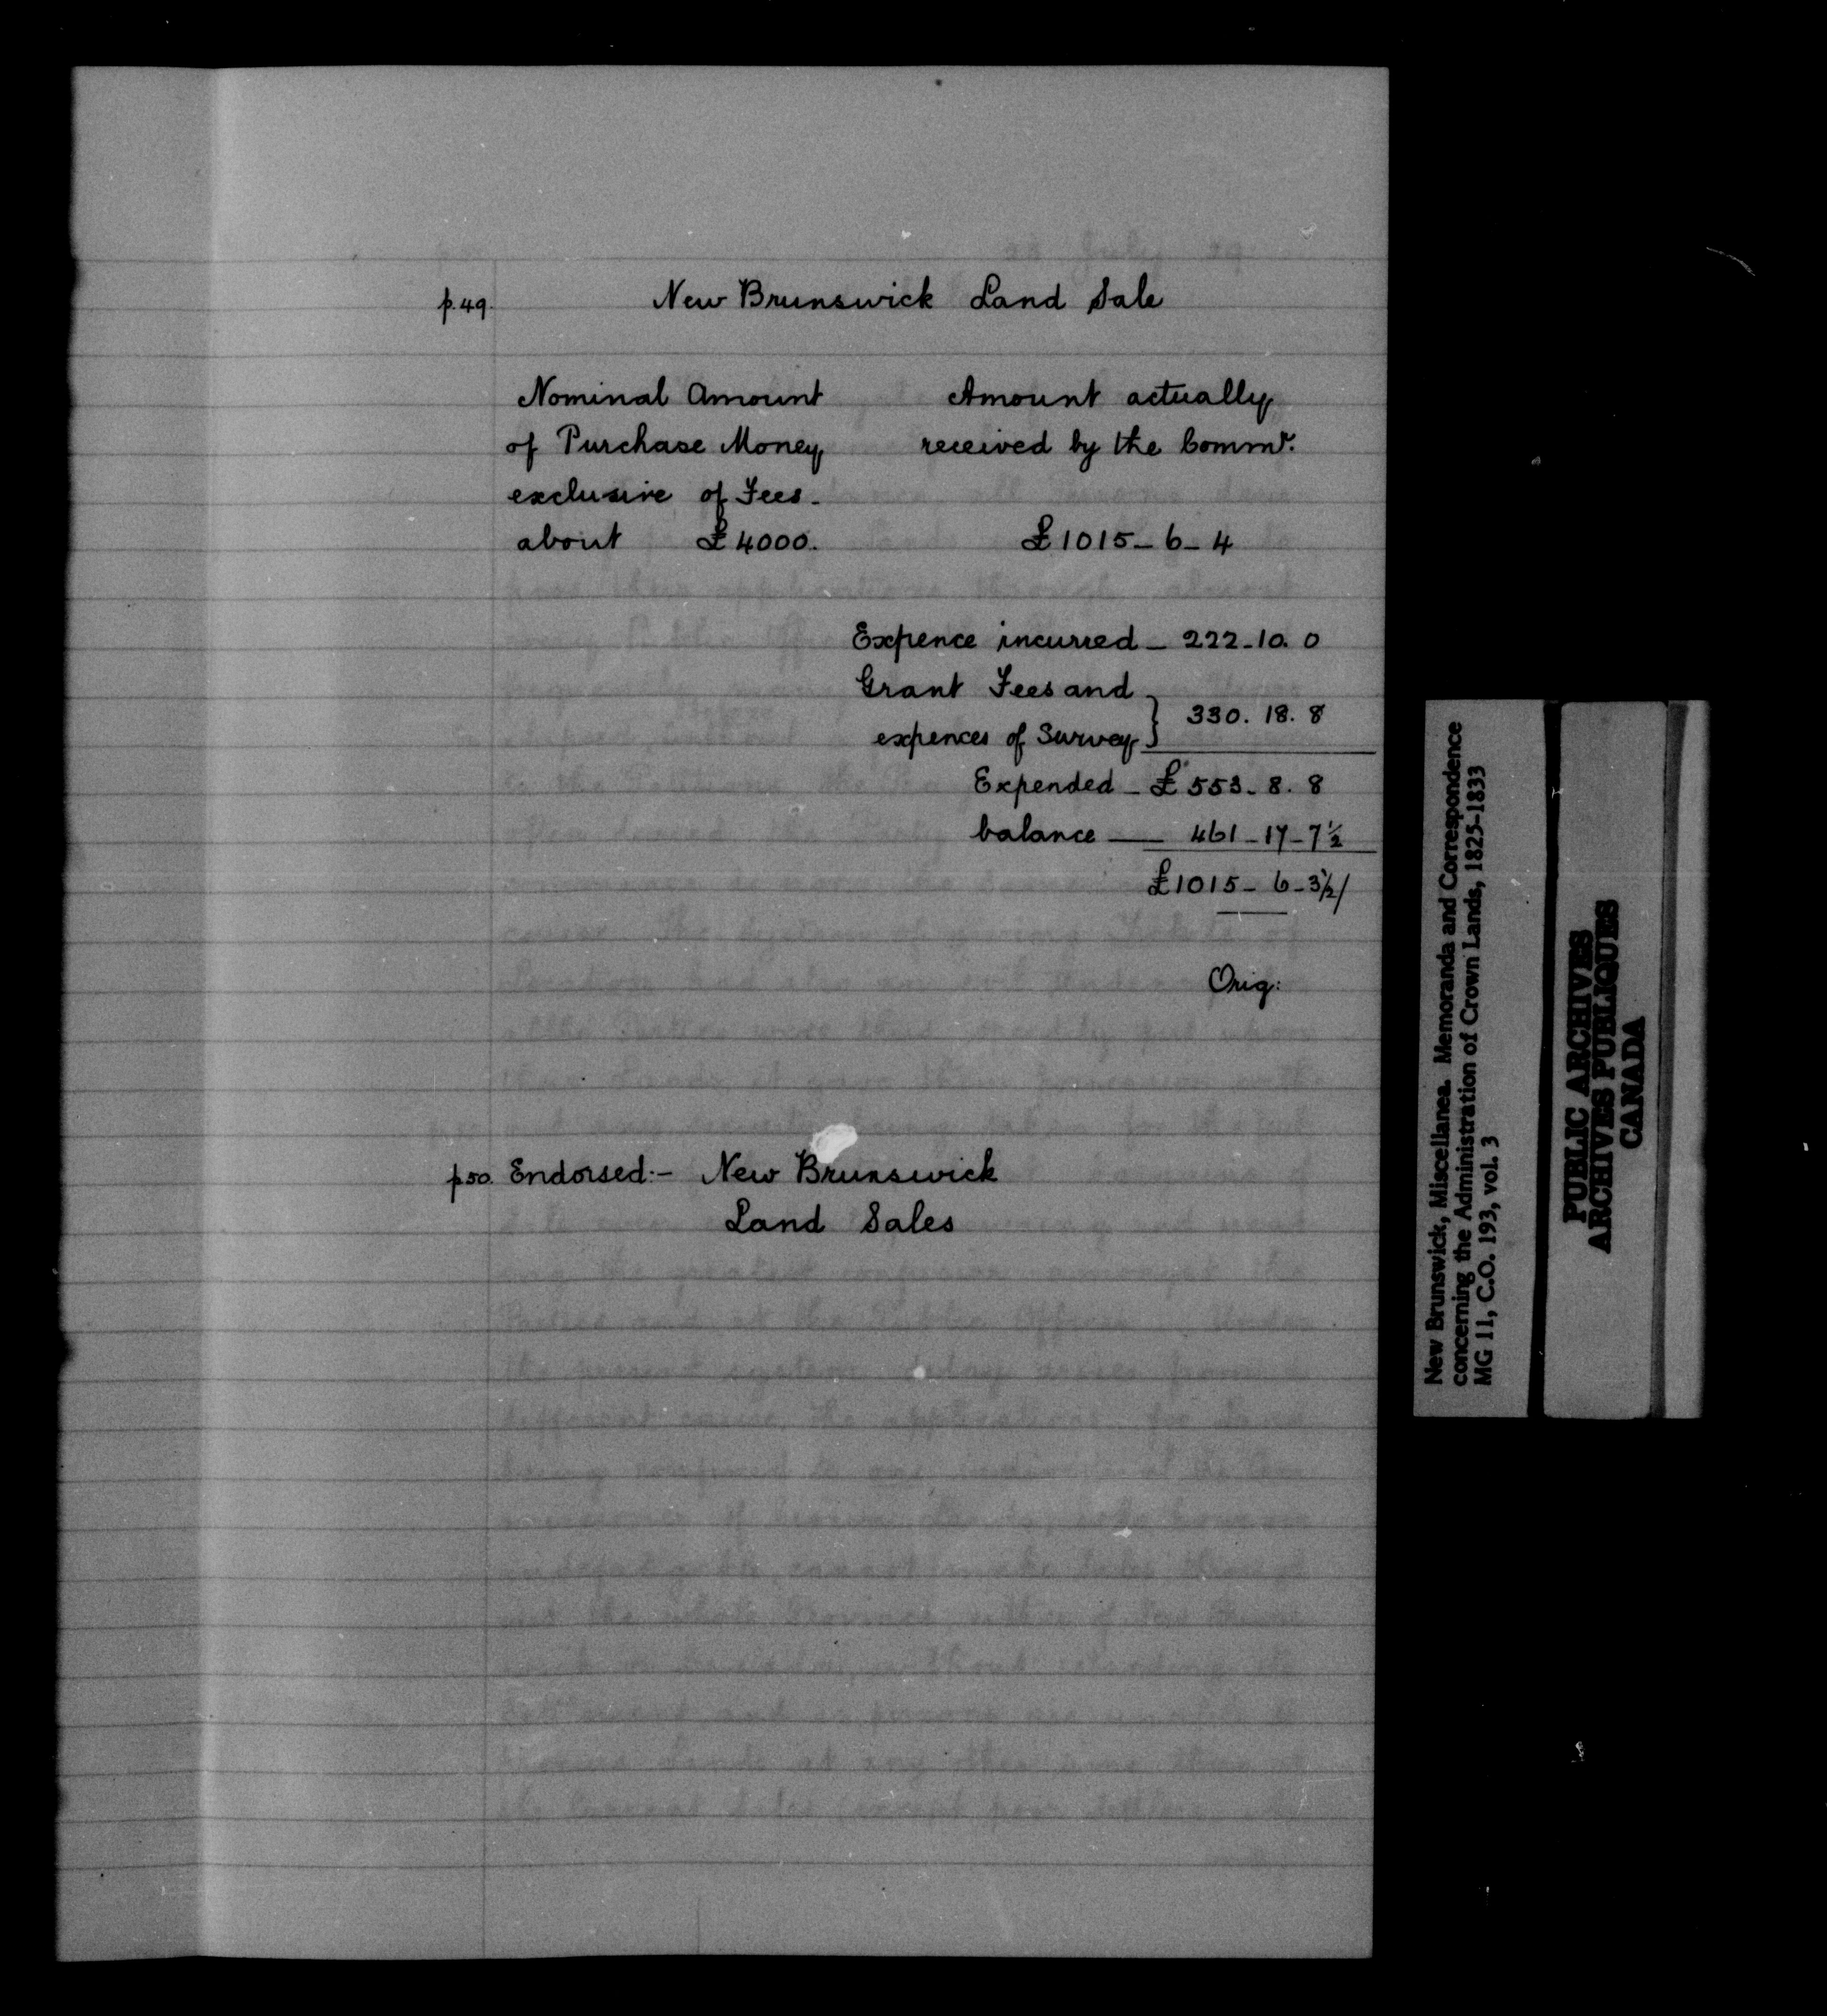 p.49. New Brunswick Land Sale
Nominal Amount Amount actually
of Purchase Money received by the Commr.
exclusive of Fees_
about £4000. £1015_6_4
Expence incurred_ 222_10.0
Grant Fees and
expences of Survey } 330.18.8
Expended_£553_8.8
balance — 461_17_7½
£1015_6_3½/
Orig:
p50. Endorsed:- New Brunswick
Land Sales
New Brunswick, Miscellanea. Memoranda and Correspondence
concerning the Administration of Crown Lands, 1825-1833
MG 11, C.O. 193, vol. 3
PUBLIC ARCHIVES
ARCHIVES PUBLIQUES
CANADA